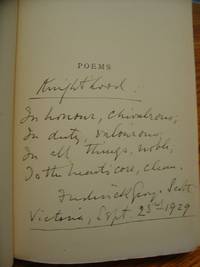 POEMS
Knighthood.
In honour, chivalrous,
In duty, valourous,
In all things, noble,
To the heart's core, clean.
Frederick George Scott
Victoria, Sept. 23rd 1929